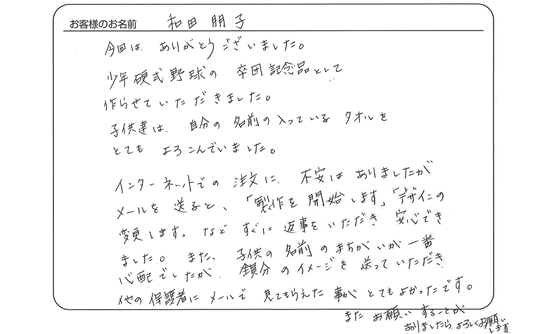 お客様のお名前 和田 朋子
今回は ありがとうございました。
少年硬式野球の 卒団記念品として
作らせていただきました。
子供達は、自分の名前の入っている タオルを
とても よろこんでいました。
インターネットでの 注文に、不安は ありましたが
メールを 送ると、「製作を 開始します」「デザインの
変更します。など すぐに 返事を いただき 安心でき
ました。また、子供の 名前の まちがいが 一番
心配でしたが、 のイメージを 送っていただき
他の 保護者に メールで 見てもらえた 事が とてもよかったです。
また お願い することが
ありましたら、よろしくお願いします。